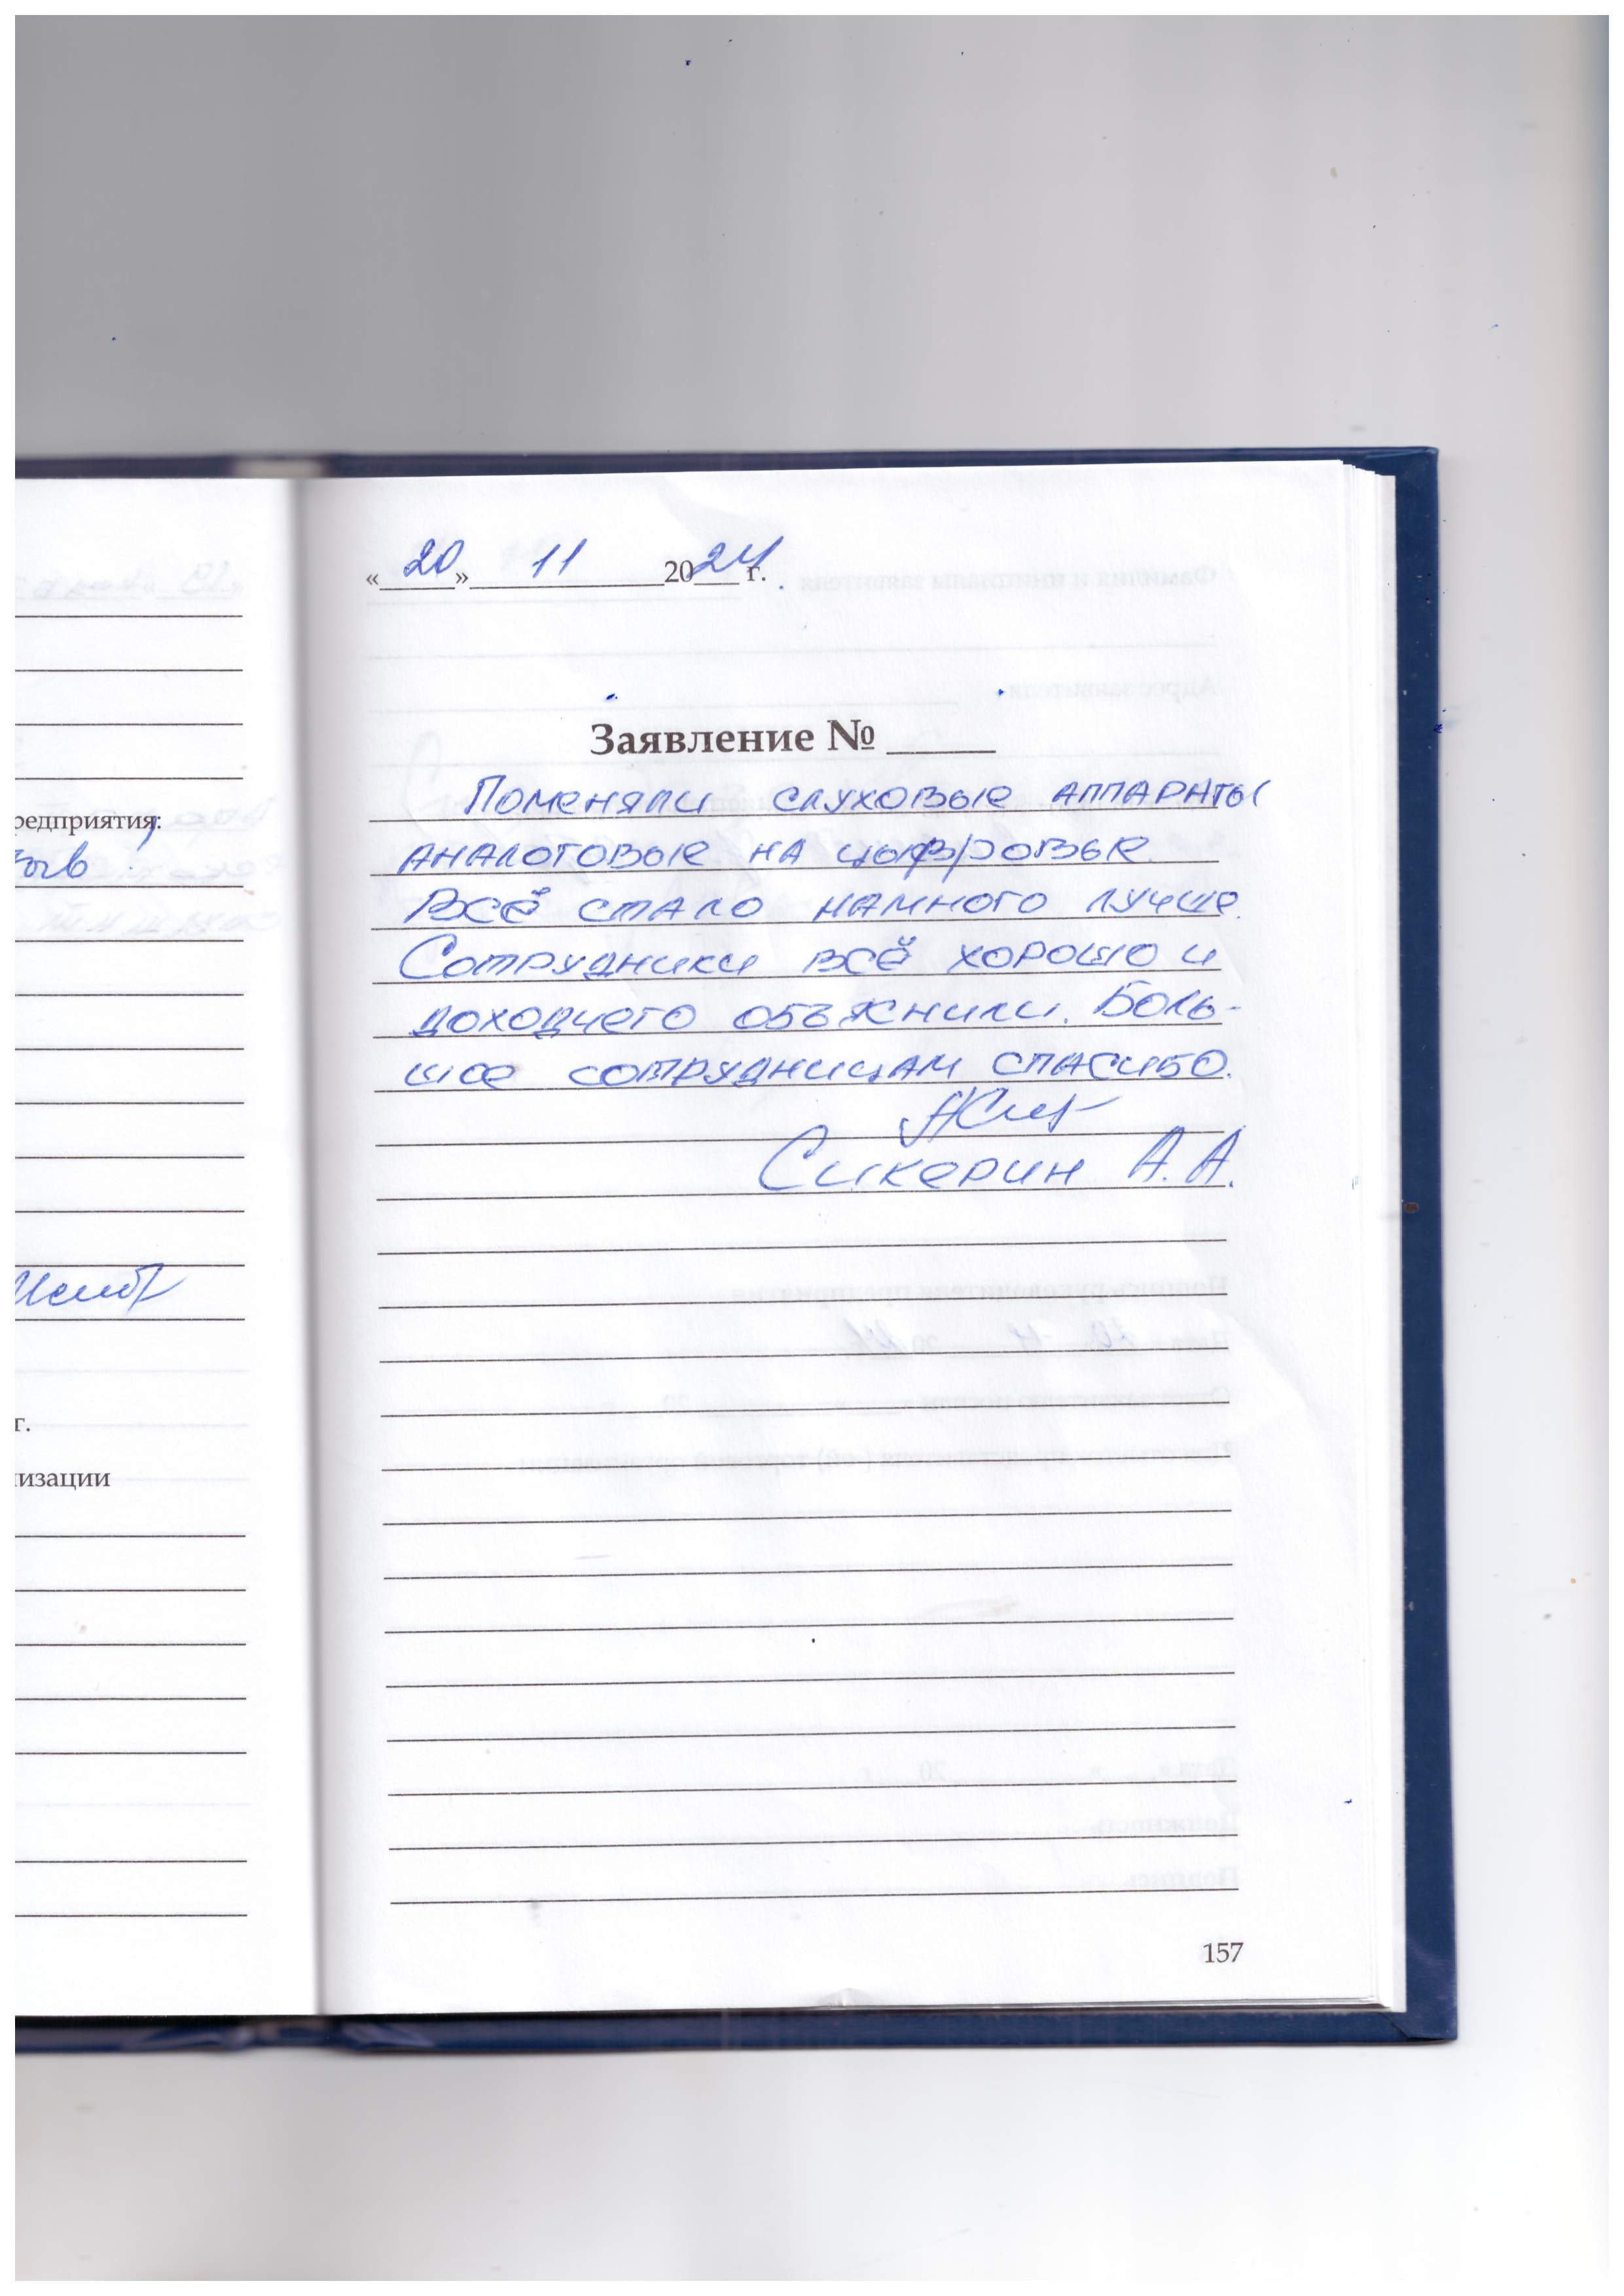 редприятия:
тыв
г.
изации
«20» 11 2024 г.
Заявление №
Поменяли слуховые аппараты
аналоговые на цыфровые.
Всё стало намного лучше.
Сотрудники всё хорошо и
доходчего объжнили. Боль-
шое сотрудницам спасибо.
Сикерин А.А.
157